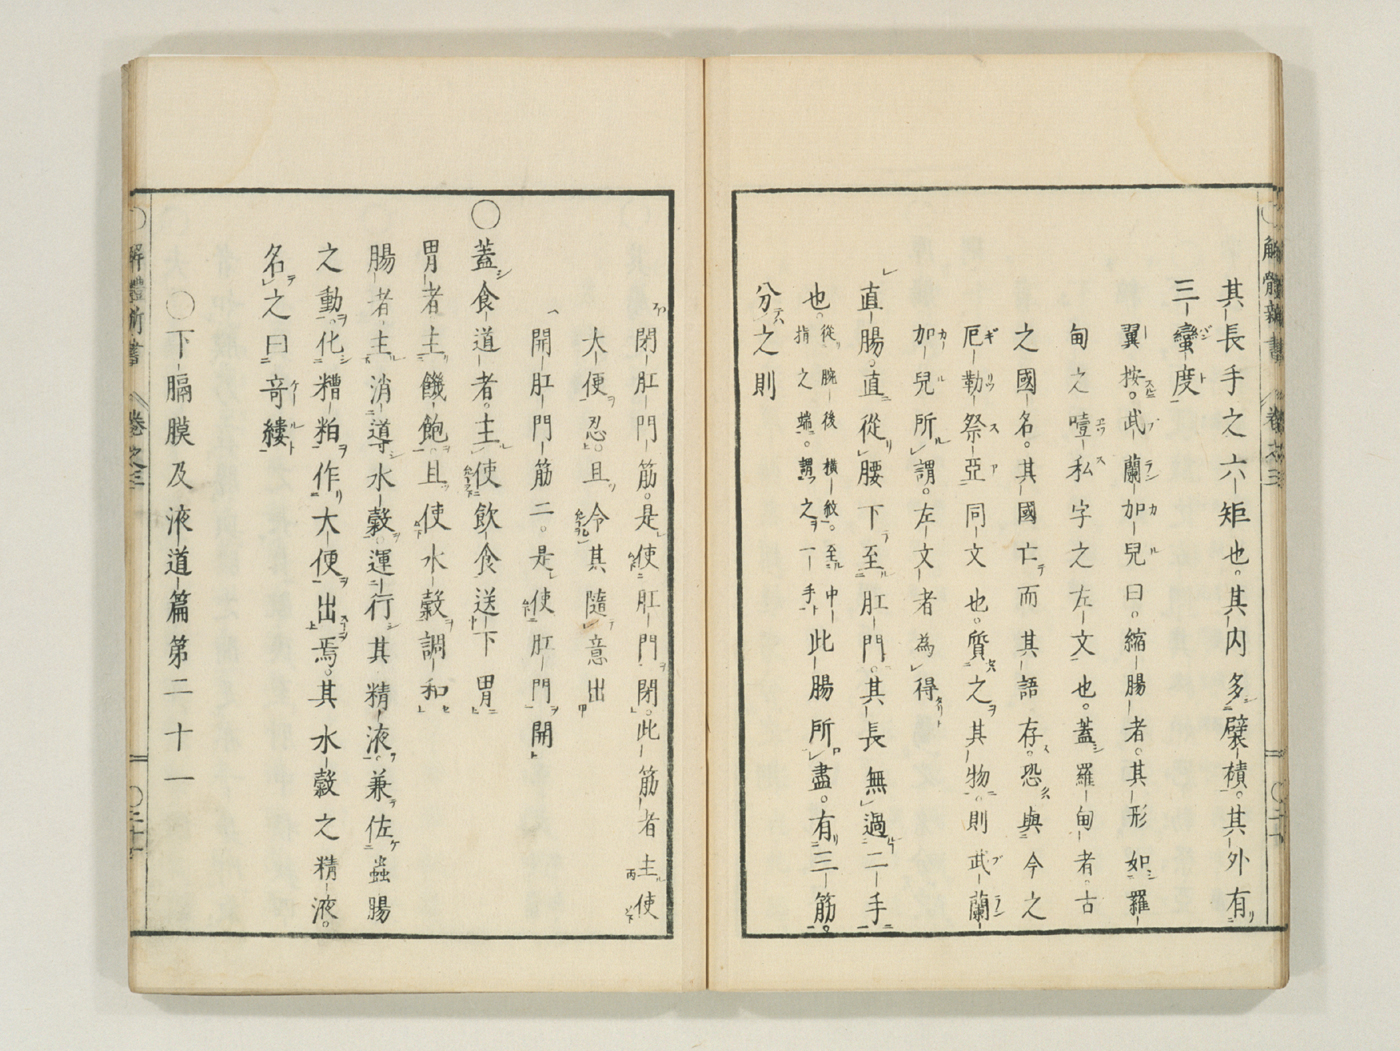 解體新書 卷之三
其長手之六矩也。其内多襞積。其外有
三蠻度
翼按。武蘭加兒曰。縮腸者。其形如羅
甸之噎私字之左文也。蓋羅甸者。古
之國名。其國亡而其語存。恐與今之
厄勒祭亞同文也。質之其物。則武蘭
加兒所謂。左文者為得
直腸。直從腰下至肛門。其長無過二手
也。從腕後橫紋。至中指之端。謂之一手 此腸所盡。有三筋。
分之則
閉肛門筋。是使肛門閉。此筋者主使
大便忍。且令其隨意出
開肛門筋二。是使肛門開
○蓋食道者。主使飲食送下胃
胃者主饑飽。且使水穀調和
腸者主消導水穀。運行其精液。兼佐蟲腸
之動。化糟粕作大便出焉。其水穀之精液。
名之曰奇縷
○下膈膜及液道篇第二十一
解體新書 卷之三